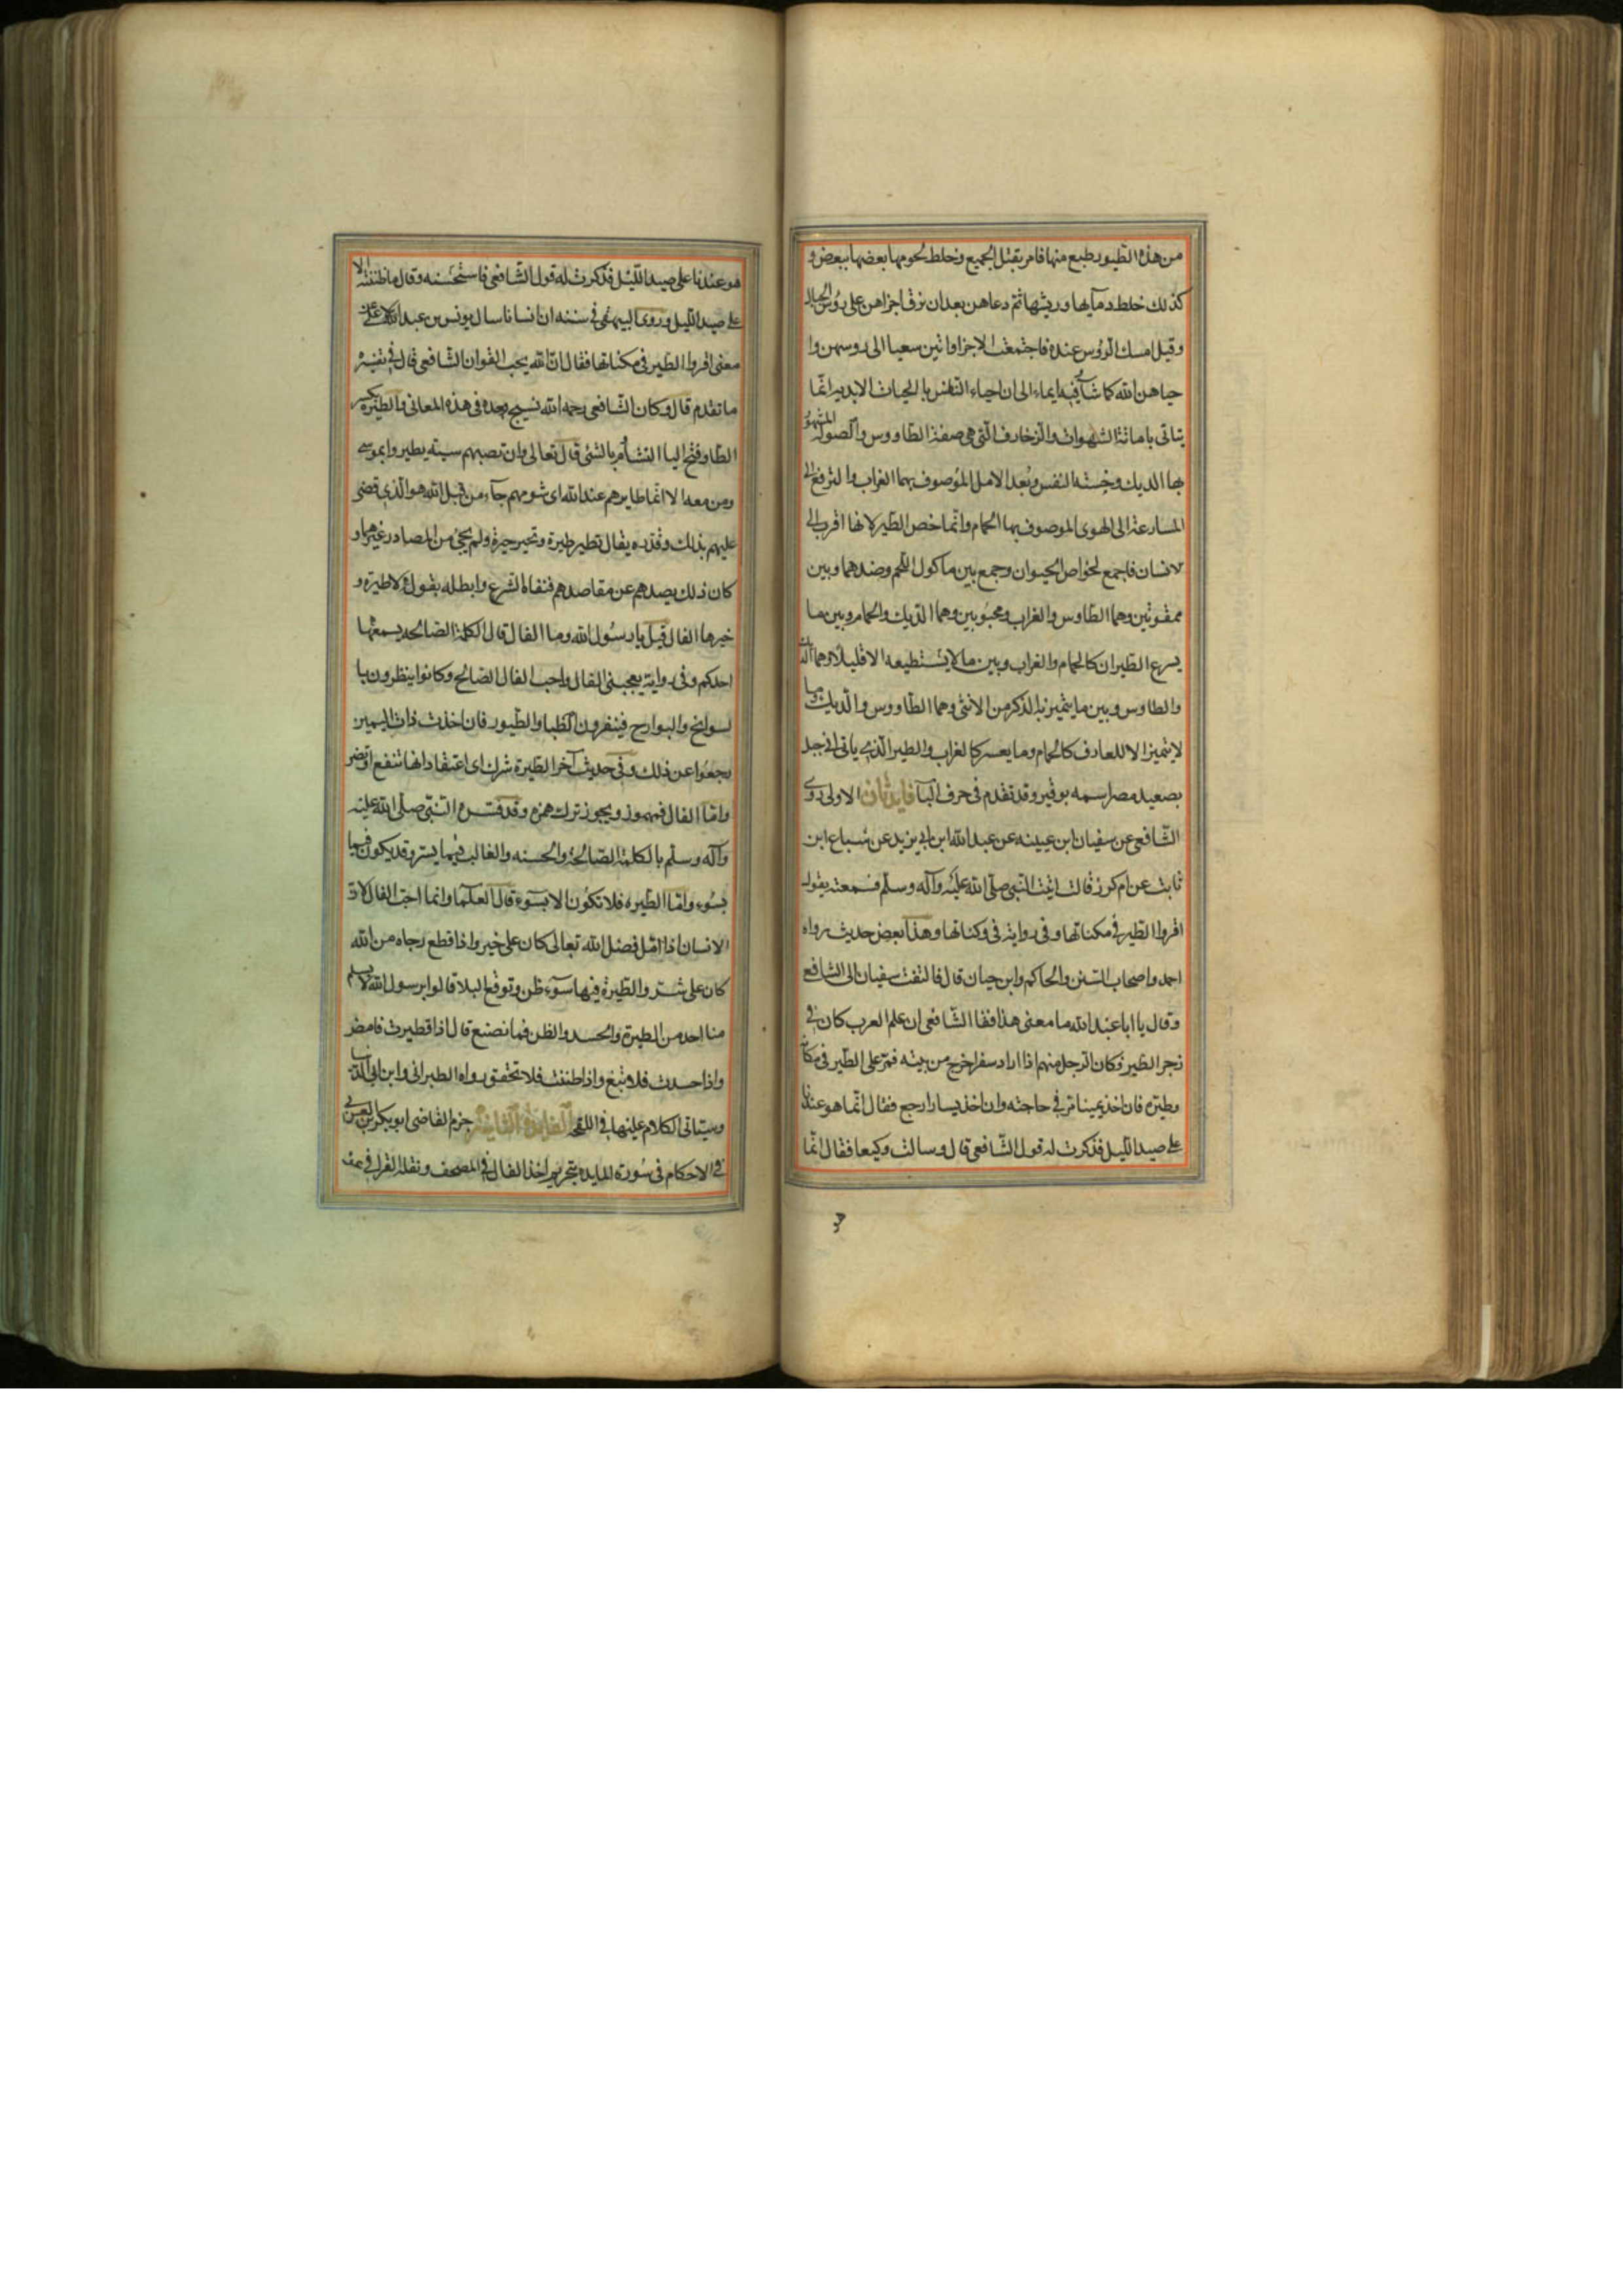 من هذه الطيور طبع منها فامر بقتل الجميع وخلط لحومها بعضها ببعض و
كذلك خلط دمآيها وريشها ثم دعاهن بعد ان فرق اجزاهن على رؤس الجبال
وقيل امسك الرؤس عنده فاجتمعت الاجزا واتين سعيا الى روسهن وا
حياهن الله كما شآء فيه ايماء الى ان احياء النفس بالحيات الابديه انما
يتاتى باماتة الشهوات والزخارف التى هى صفة الطاووس والصوله المشهور
بها الديك وخسة النفس وبعد الامل الموصوف بهما الغراب والترفع الى
المسارعة الى الهوى الموصوف بها الحمام وانما خص الطير لانها اقرب الى
لانسان فاجمع لخواص الحيوان وجمع بين ماكول اللحم وضدهما وبين
ممقوتين وهما الطاوس والغراب ومحبوبين وهما الديك والحمام وبين ما
يسرع الطيران كالحمام والغراب وبين ما لا يستطيعه الا قليلا وهما الديك
والطاوس وبين ما يتميز به الذكر من الانثى وهما الطاووس والديك وما
لا يتميز الا للعارف كالحمام وما يعسر كالغراب والطير الذى ياتى الى جبل
بصعيد مصر اسمه بوقير وقد تقدم فى حرف البآ فايدتان الاولى روى
الشافعى عن سفيان ابن عيينه عن عبد الله ابن ابى يزيد عن سباع ابن
ثابت عن ام كرز قالت اتيت النبى صلى الله عليه وآله وسلم فسمعته يقول
اقروا الطير فى مكناتها وفى رواية فى وكناتها وهذا بعض حديث رواه
احمد واصحاب السنن والحاكم وابن حبان قال فالتفت سفيان الى الشافعى
وقال يا ابا عبد الله ما معنى هذا فقا الشافعى ان علم العرب كان فى
زجر الطير فكان الرجل منهم اذا اراد سفرا خرج من بيته فمر على الطير فى مكانه
وطيره فان اخذ يمينا مر فى حاجته وان اخذ يسارا رجع فقال انما هو عندنا
على صيد الليل فذكرت له قول الشافعى قال وسالت وكيعا فقال انما
هو
هو عندنا على صيد الليل فذكرت له قول الشافعى فاستحسنه وقال ما ظننته الا
على صيد الليل وروى البيهقى فى سننه ان انسانا سال يونس بن عبد الاعلى عن
معنى اقروا الطير فى مكناتها فقال ان الله يحب القوان الشافعى قال فى تفسيره
ما تقدم قال وكان الشافعى رحمه الله نسيج وحده فى هذه المعانى والطيره بكسر
الطا وفتح اليا التشأم بالشئ قال تعالى وان تصبهم سيئه يطيروا بموسى
ومن معه الا انما طايرهم عند الله اى شومهم جآء من قبل الله هو الذى قضى
عليهم بذلك وقدره يقال تطير طيرة وتحير حيرة ولم يجئ من المصادر غيرهما و
كان ذلك يصدهم عن مقاصدهم فنفاه الشرع وابطله بقوله لا طيرة و
خيرها الفال قيل يا رسول الله وما الفال قال الكلمة الصالحه يسمعها
احدكم وفى رواية يعجبنى الفال واحب الفال الصالح وكانوا ينظرون با
لسوانح والبوارح فينفرون الظبا والطيور فان اخذت ذات اليمين
رجعوا عن ذلك وفى حديث آخر الطيرة شرك اى اعتقاد انها تنفع او تضر
واما الفال فمهموز ويجوز ترك همزه وقد فسره النبى صلى الله عليه
وآله وسلم بالكلمة الصالحة والحسنه والغالب فيما يسر وقد يكون فيما
يسوء واما الطيره فلا تكون الا بسوء قال العلما وانما احب الفال لان
الانسان اذا امل فضل الله تعالى كان على خير واذا قطع رجاه من الله
كان على شر والطيرة فيها سوء ظن وتوقع البلا قالوا يرسول الله لا يسلم
منا احد من الطيرة والحسد والظن فما نصنع قال اذا تطيرت فامض
واذا حسدت فلا تبغ واذا ظننت فلا تحقق رواه الطبرانى وابن ابى الدنيا
وسياتى الكلام عليها فى اللقحه الفايدة الثانية جزم القاضى ابو بكر بن العربى
فى الاحكام فى سورة المايده بتحريم اخذ الفال فى المصحف ونقله القرافى عن